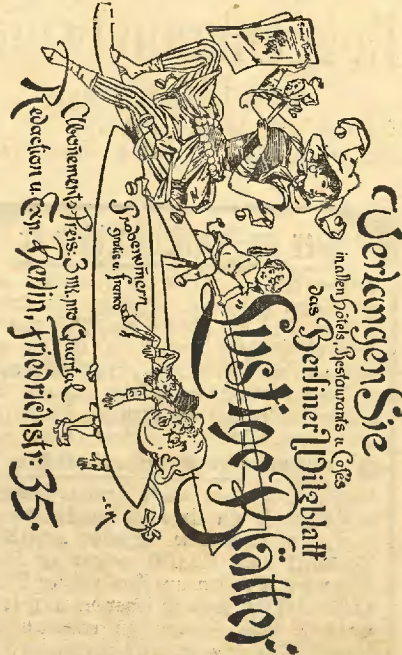 Verlangen Sie
in allen Hôtels, Restaurants u. Cafés
das Berliner Witzblatt
"Lustige Blätter"
Probenummern
gratis u. franco
Abonnements-Preis: 3 Mk. pro Quartal
Redaction u. Exp. Berlin, Friedrichstr. 35.